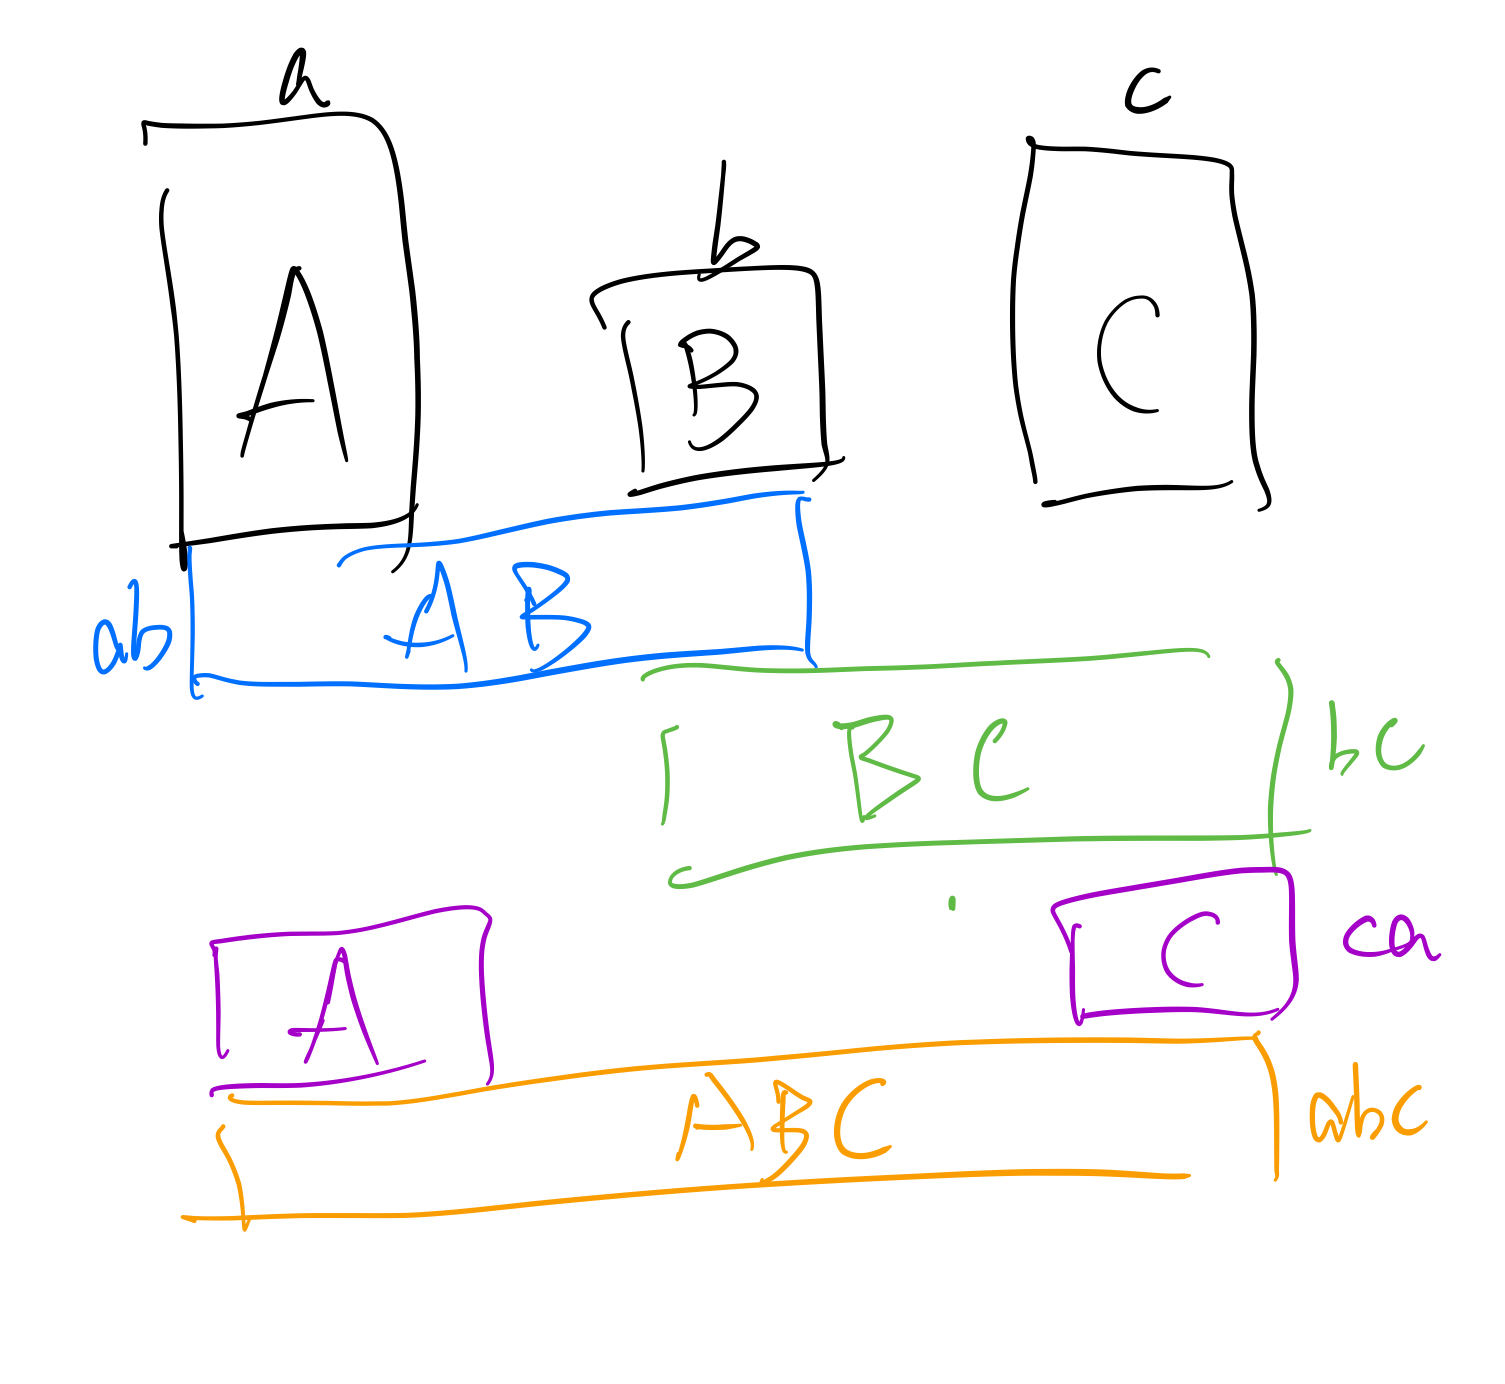 a
c
b
A
B
C
ab
A B
B C
bc
A
C
ca
ABC
abc